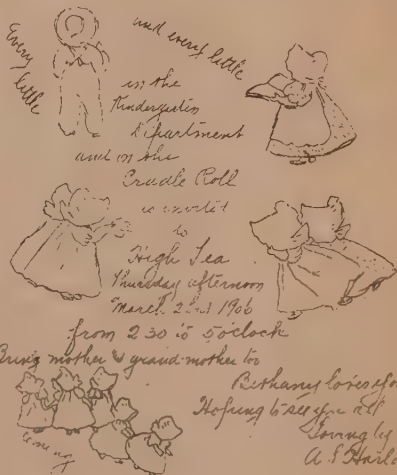 Every little
and every little
in the
Kindergarten
Department
and in the
Cradle Roll
is invited
to
High Tea
Thursday afternoon
March 1906
from 2 30 to 5 o'clock
Bring mother & grand-mother too
Bethany loves you
Hoping to see you all
Lovingly
A. S. Harlo
coming